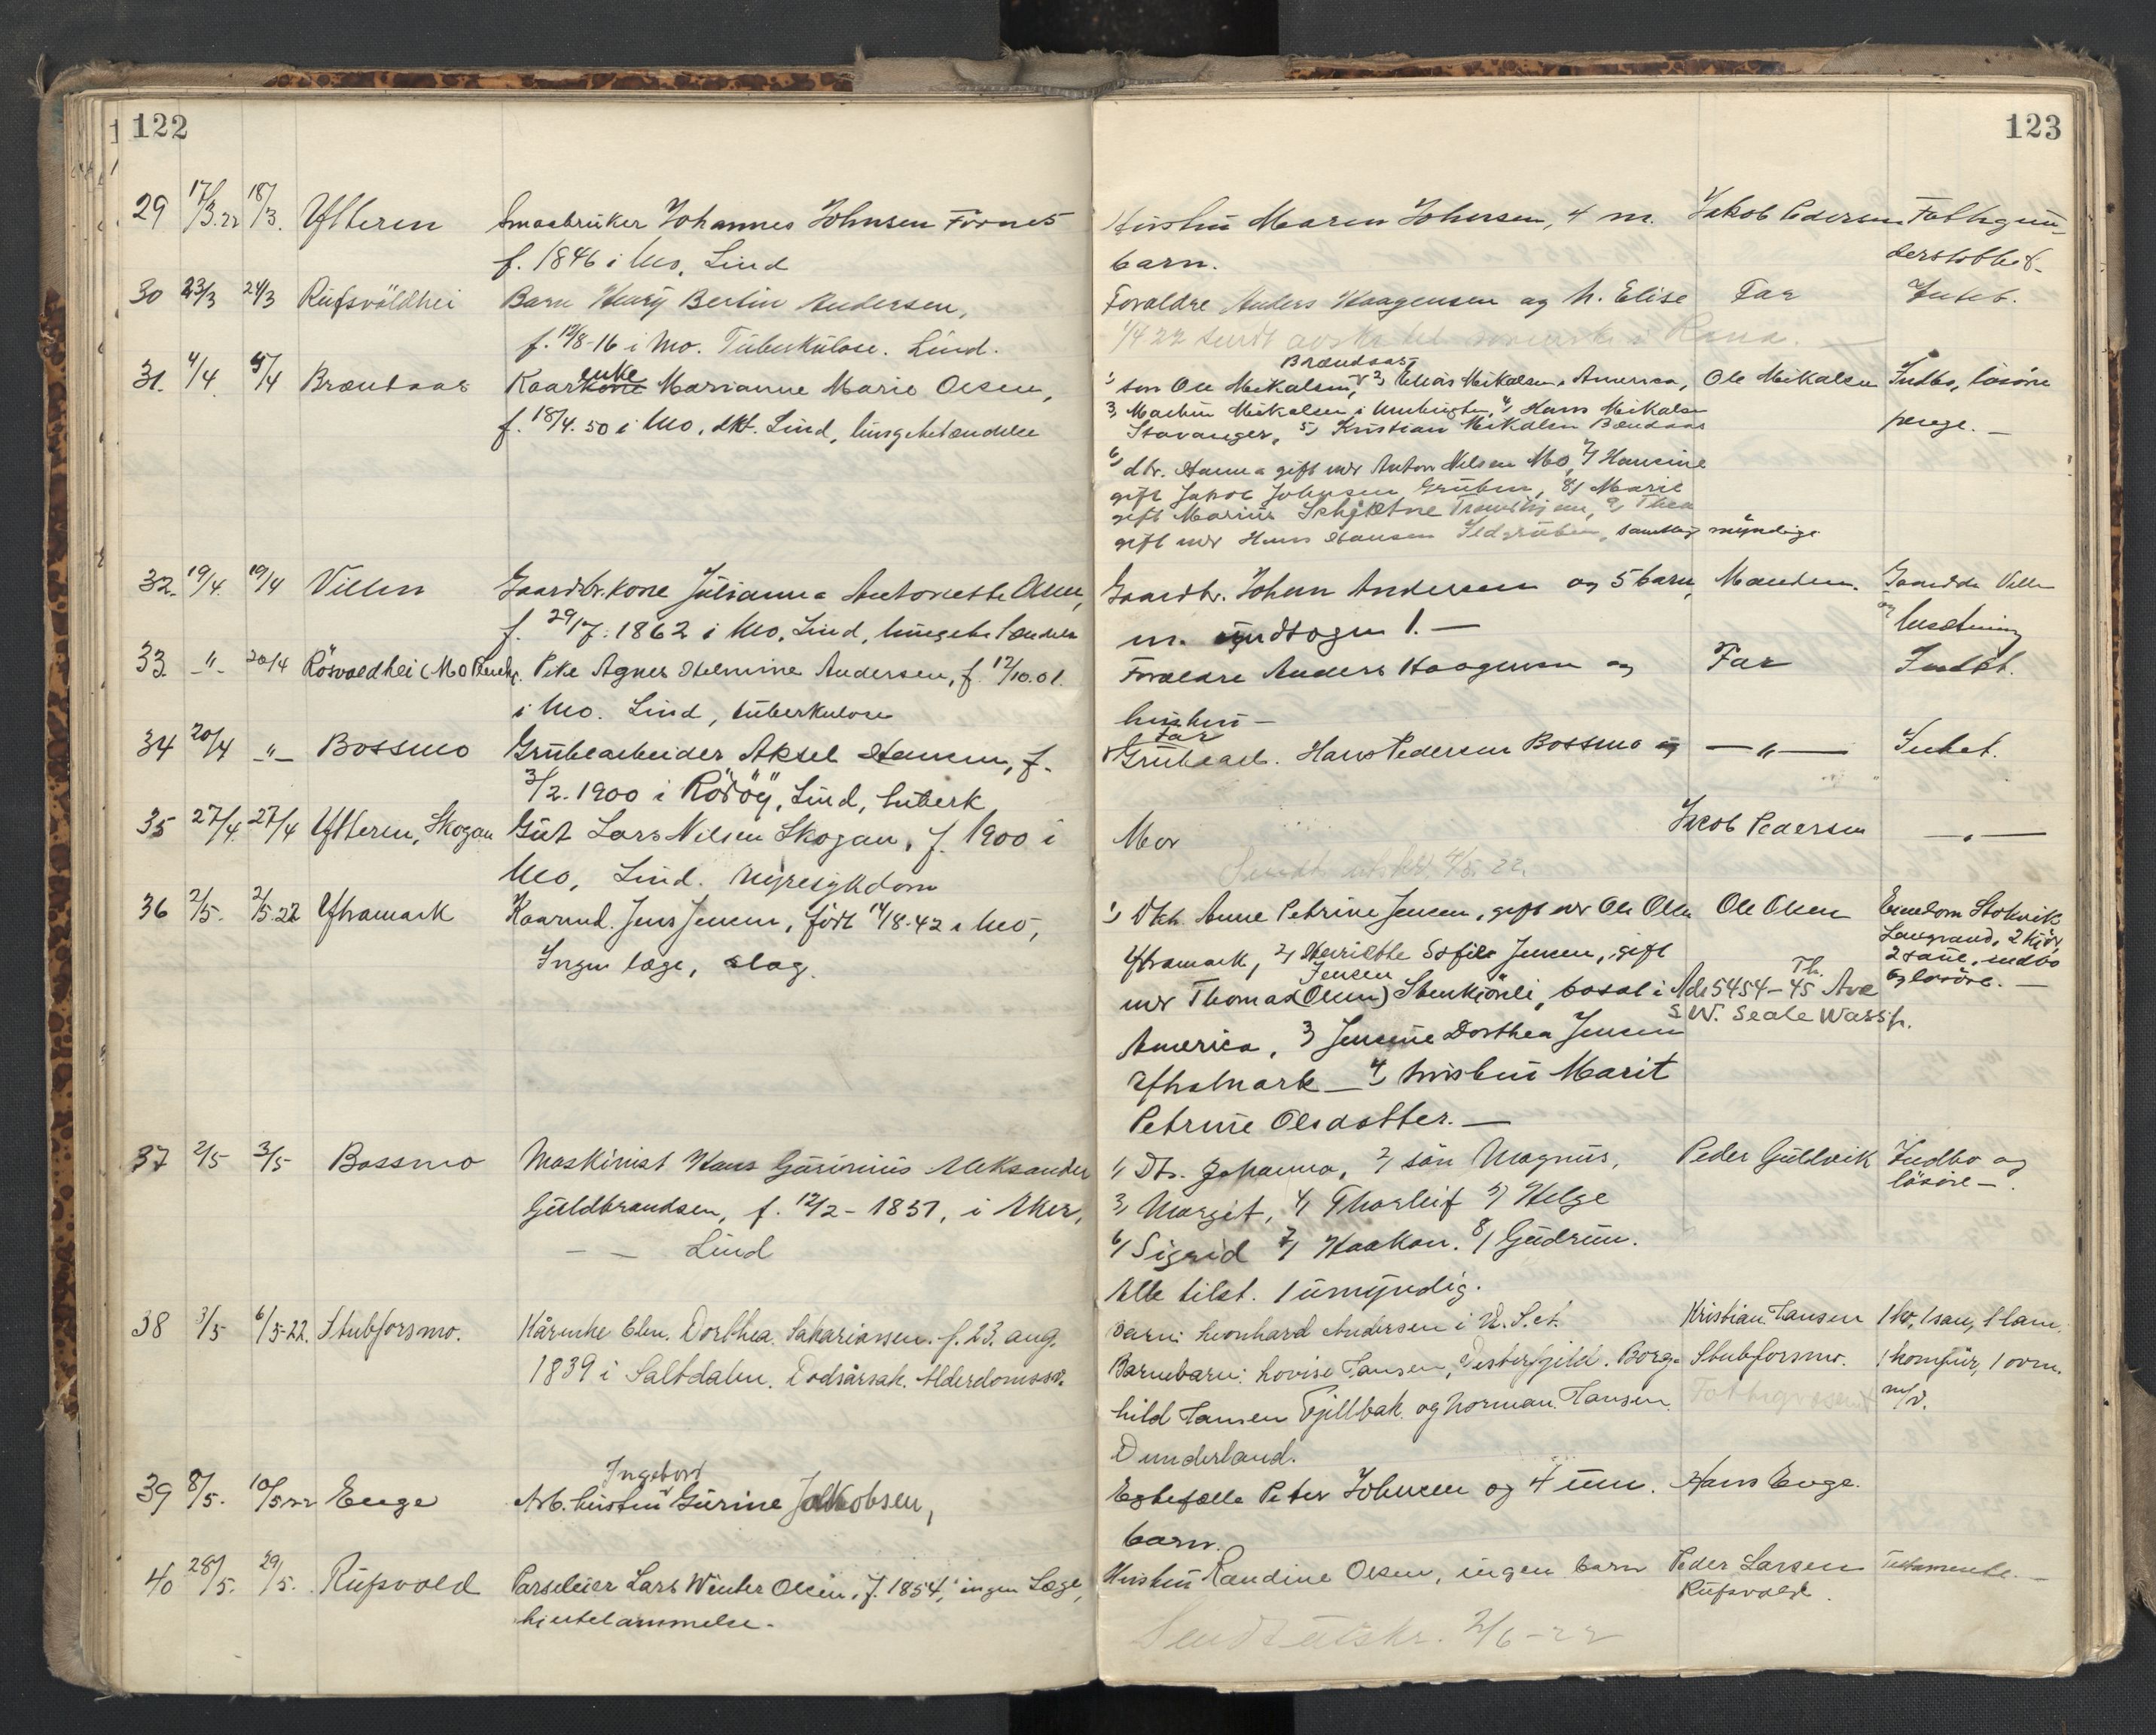 122
123
29 17/3.22 18/3. Ytteren Smaabruker Johannes Johnsen Fornes Hustru Maren Johnsen, 4 m. Jakob Pedersen Fattigun-
f. 1846 i Mo, Lind barn. derstøttet.
30 23/3 24/3 Rufsvoldhei Barn Henry Bertin Andersen, Foraldre Anders Haagensen og h. Elise Far Intet.
f. 12/8-16 i Mo. Tüberkülose. Lind. 1/4 22 sendt i Rana.
31. 4/4. 5/4 Brændaas Kaarkone enke Marianne Marie Olsen, 1) søn Ole Mikalsen, Brændaas 2) Elias Mikalsen, America, Ole Mikalsen Indbo, løsøre
f. 18/4.50 i Mo, dkt. Lind, lungebetændelse 3, Martin Mikalsen i 4, Hans Mikalsen penge. —
Stavanger, 5) Kristian Mikalsen Brændaas
6) dtr. Hanna gift m/ Anton Nilsen Mo, 7) Hansine
gift Jakob Johnsen Grüben, 8) Marie
gift Marius Schjetne Trondhjem, 9) Thea
gift m/ Hans Hansen Ildgrüben, samtlig myndige
32. 19/4. 19/4 Villen Gaardbr.kone Julianna Antonette Olsen, Gaardbr. Johan Andersen og 5 barn, Manden. Gaarden Villen
f. 29/7.1862 i Mo, Lind, lungebetændelse m. undtagen 1. — og besætning
33 -"- 20/4 Rösvoldhei (Mo Pike Agnes Helmine Andersen, f. 12/10.01. Foraldre Anders Haagensen og Far Intet.
i Mo. Lind, tüberkulose hustru —
34 20/4 -"- Bossmo Grubearbeider Aksel Hansen, f. Far Grubearb. Hans Pedersen Bossmo og —"— Intet.
3/2.1900 i Rödöy, Lind, tuberk
35 27/4. 27/4 Ytteren, Skogan Gut Lars Nilsen Skogan, f. 1900 i Mor Jacob Pedersen —"—
Mo, Lind. Nyresykdom Sendt utskr. 4/5.22.
36 2/5. 2/5.22 Ytramark Kaarmd. Jens Jensen, födt 14/8-42 i Mo, 1) Dtr. Anne Petrine Jensen, gift m/ Ole Olsen Ole Olsen Eiendom Stokvik
Ingen læge, slag. Ytramark, 2) Henriette Sofie Jensen, gift Langrand, 2 kjör,
m/ Thomas (Olsen) Jensen Stenkjönli, bosat i Adr 5454 - 45 Th. Ave 2 saue, indbo
America, 3) Jensine Dorthea Jensen S.W. Seale Wassh. og løsøre. —
Ytramark — 4) hustru Marit
Petrine Olsdatter. —
37 2/5 3/5 Bossmo Maskinist Hans Gurinius Aleksander 1) Dtr. Johanna, 2) sön Magnus, Peder Guldvik Indbo og
Guldbrandsen, f. 12/2-1857, i Aker, 3) Margit, 4) Thorleif 5) Helge løsøre —.
— — Lind 6) Sigrid 7) Haakon. 8) Gudrun.
Alle tilst. 1 umyndig.
38 3/5 6/5-22. Stubforsmo. Kårenke Elen Dorthea Sakariassen. f. 23. aug. Barn: Leonhard Andersen i U.S.A. Kristian Hansen 1 ko, 1 sau, 1 lam,
1839 i Saltdalen. Dødsårsak. Alderdomssv. Barnebarn: Lovise Hansen, Vesterfjeld. Borg- Stubforsmo. 1 komfür, 1 ovn.
hild Hansen Fjellbak og Norman Hansen Fattigvæsenet m/v.
Dunderland.
39 8/5. 10/5 22 Enge Arb. hustru Ingeborg Gurine Jakobsen, Egtefælle Peter Johnsen og 4 um. Hans Enge.
barn.
40 28/5. 29/5. Rufsvold Parseleier Lars Winter Olsen, f. 1854, ingen Læge, Hustru Randine Olsen, ingen barn Peder Larsen Testamente. —
hjertelammelse. Rufsvold.
Sendt utskr. 2/6-22